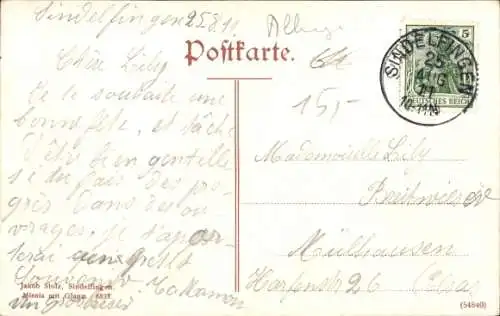 Sindelfingen 25 8 11
Postkarte.
5
SINDELFINGEN
25
AUG
11
DEUTSCHES REICH
15,-
Chère Lily
Je te souhaite une
bonne fête, et tâche
d'être bien gentille
si tu fais des pro-
grès dans des ou-
vrages, je t'appor-
terai un petit
souvenir. Ta Maman
Mademoiselle Lily
Mülhausen
Harfenstr 26 Elsass
Jakob Stolz, Sindelfingen.
(54840)